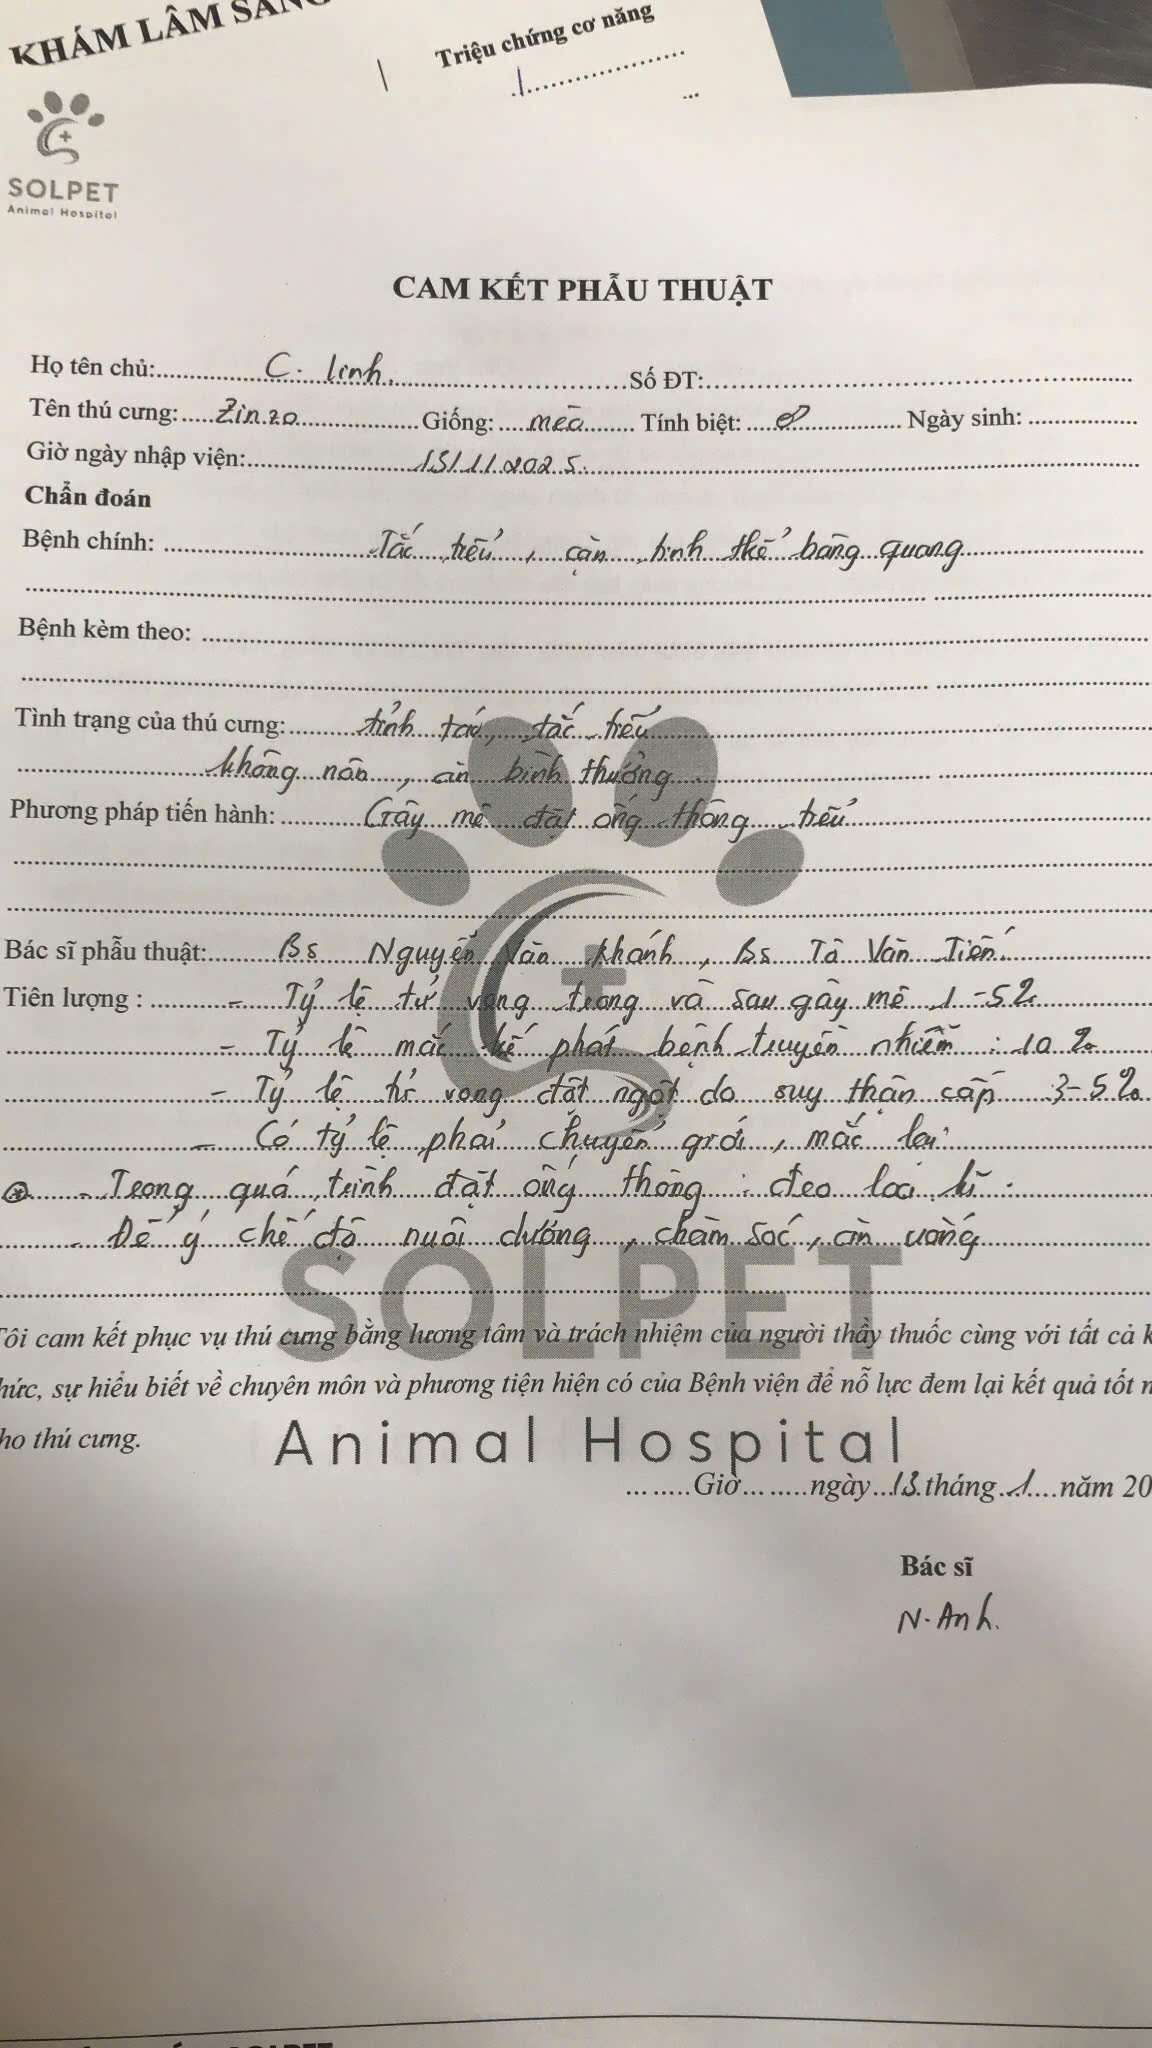 KHÁM LÂM SÀNG
Triệu chứng cơ năng
SOLPET
Animal Hospital
CAM KẾT PHẪU THUẬT
Họ tên chủ: C. Linh. Số ĐT:
Tên thú cưng: Zinzo Giống: mèo Tính biệt: Ngày sinh:
Giờ ngày nhập viện: 13/1/2025.
Chẩn đoán
Bệnh chính: Tắc tiểu, cặn tinh thể bàng quang
Bệnh kèm theo:
Tình trạng của thú cưng: tỉnh táo, tắc tiểu
không nôn, ăn bình thường
Phương pháp tiến hành: Gây mê đặt ống thông tiểu
Bác sĩ phẫu thuật: Bs Nguyễn Văn Khánh, Bs Tô Văn Tiến
Tiên lượng : - Tỷ lệ tử vong trong và sau gây mê 1-5%
- Tỷ lệ mắc kế phát bệnh truyền nhiễm : 10%
- Tỷ lệ tử vong đột ngột do suy thận cấp 3-5%
- Có tỷ lệ phải chuyển giới, mắc lại
- Trong quá trình đặt ống thông : đeo loa kĩ.
- Để ý chế độ nuôi dưỡng, chăm sóc, ăn uống
SOLPET
Tôi cam kết phục vụ thú cưng bằng lương tâm và trách nhiệm của người thầy thuốc cùng với tất cả k
hức, sự hiểu biết về chuyên môn và phương tiện hiện có của Bệnh viện để nỗ lực đem lại kết quả tốt n
ho thú cưng.
Animal Hospital
Giờ ngày 13 tháng 1 năm 20
Bác sĩ
N. Anh.